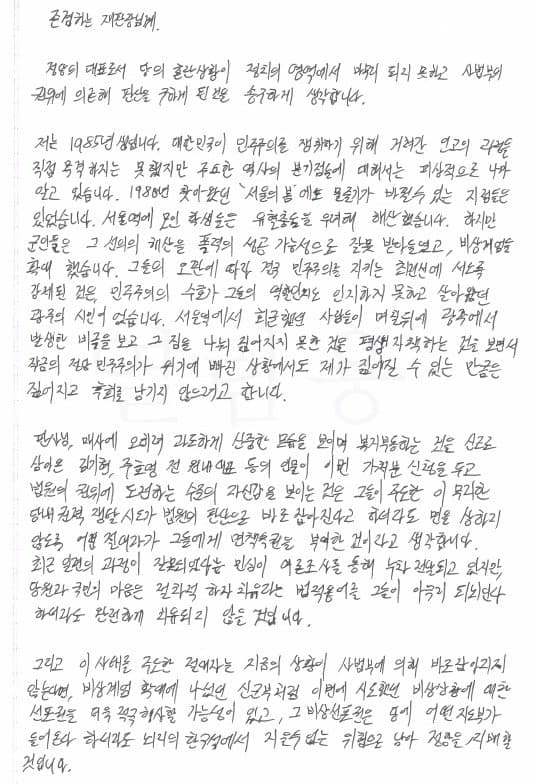 존경하는 재판장님께.
정당의 대표로서 당의 혼란상황이 정치의 영역에서 마무리 되지 못하고 사법부의
권위에 의존해 판단을 구하게 된 것을 송구하게 생각합니다.
저는 1985년생입니다. 대한민국이 민주주의를 쟁취하기 위해 거쳐간 연고의 과정을
직접 목격하지는 못했지만 주요한 역사의 분기점들에 대해서는 피상적으로 나마
알고 있습니다. 1980년 찾아왔던 '서울의 봄'에도 물줄기가 바뀔수 있는 지점들은
있었습니다. 서울역에 모인 학생들은 유혈충돌을 우려해 해산했습니다. 하지만
군인들은 그 선의의 해산을 폭력의 성공 가능성으로 잘못 받아들였고, 비상계엄을
확대 했습니다. 그들의 오판에 따라 결국 민주주의를 지키는 최전선에 서도록
강제된 것은, 민주주의의 수호가 그들의 역할인지도 인지하지 못하고 살아왔던
광주의 시민이었습니다. 서울역에서 회군했던 사람들이 며칠뒤에 광주에서
발생한 비극을 보고 그 짐을 나눠 짊어지지 못한 것을 평생 자책하는 것을 보면서
작금의 정당 민주주의가 위기에 빠진 상황에서도 제가 짊어질 수 있는 만큼은
짊어지고 후회를 남기지 않으려고 합니다.
판사님, 매사에 오히려 과도하게 신중한 모습을 보이며 복지부동하는 것을 신조로
삼아온 김기현, 주호영 전 원내대표 등의 인물이 이번 가처분 신청을 두고
법원의 권위에 도전하는 수준의 자신감을 보이는 것은 그들이 주도한 이 무리한
당내 권력 쟁탈 시도가 법원의 판단으로 바로 잡아진다고 하더라도 면을 상하지
않도록 어떤 절대자가 그들에게 면책특권을 부여한 것이라고 생각합니다.
최근 일련의 과정이 잘못되었다는 민심이 여론조사를 통해 누차 전달되고 있지만,
당원과 국민의 마음은 절차적 하자 치유라는 법적용어를 그들이 아무리 되뇌인다
하더라도 완전하게 치유되지 않을 것입니다.
그리고 이 사태를 주도한 절대자는 지금의 상황이 사법부에 의해 바로잡아지지
않는다면, 비상계엄 확대에 나섰던 신군부처럼 이번에 시도했던 비상상황에 대한
선포권을 더욱 적극 행사할 가능성이 있고, 그 비상선포권은 당에 어떤 지도부가
들어온다 하더라도 뇌리의 한구석에서 지울수 없는 위협으로 남아 정당을 지배할
것입니다.